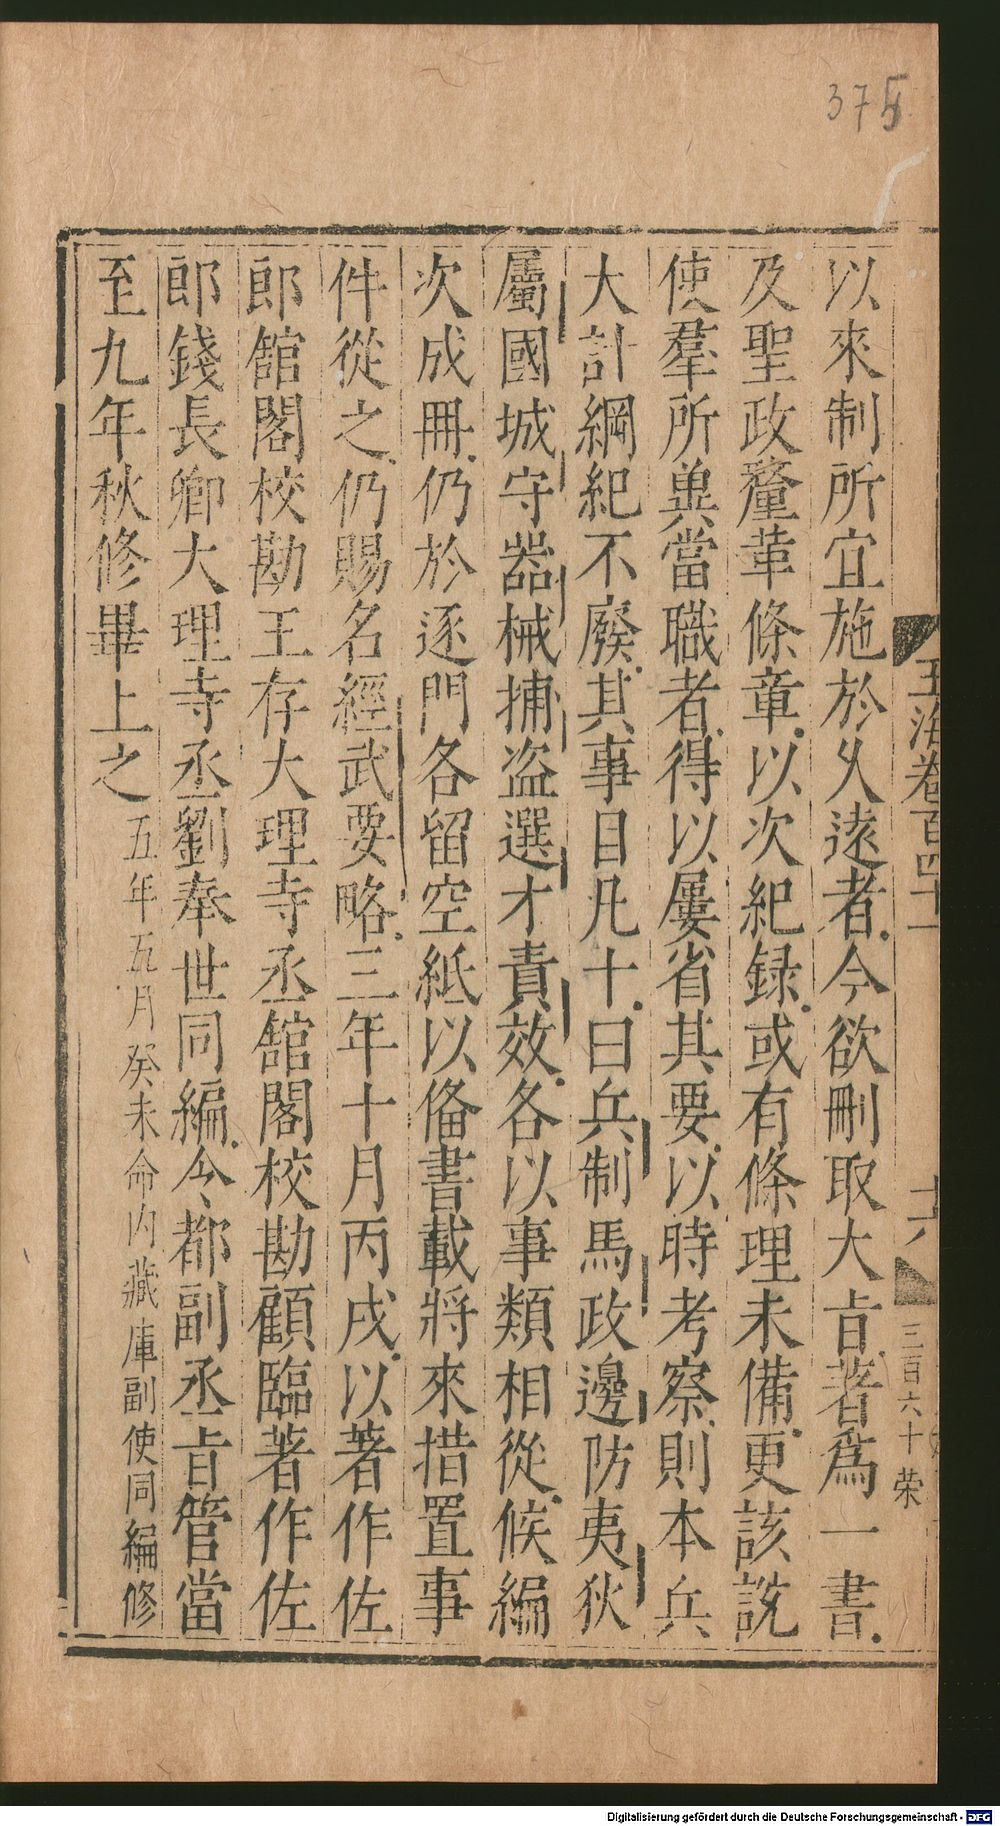 375
玉海卷百四十一
十六
三百六十 荣
以來制所宜施於久逺者今欲刪取大㫖著爲一書
及聖政釐革條章以次紀録或有條理未備更該説
使羣所㒸當職者得以屢省其要以時考察則本兵
大計綱紀不廢其事目凡十曰兵制馬政邊防夷狄
屬國城守器械捕盗選才責效各以事類相從候編
次成冊仍於逐門各留空紙以偹書載將來措置事
件從之仍賜名經武要略三年十月丙戌以著作佐
郎舘閣校勘王存大理寺丞舘閣校勘顧臨著作佐
郎錢長卿大理寺丞劉奉世同編今都副丞㫖管當
至九年秋修畢上之五年五月癸未命内藏庫副使同編修
Digitalisierung gefördert durch die Deutsche Forschungsgemeinschaft - DFG